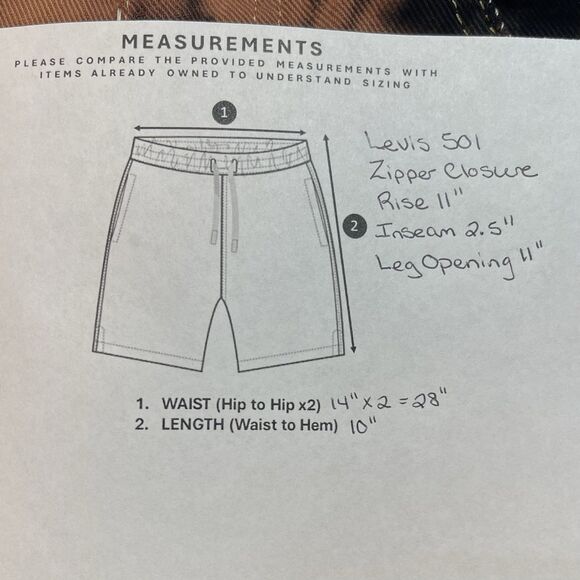 MEASUREMENTS
PLEASE COMPARE THE PROVIDED MEASUREMENTS WITH
ITEMS ALREADY OWNED TO UNDERSTAND SIZING
1
Levis 501
Zipper Closure
Rise 11"
2
Inseam 2.5"
Leg Opening 11"
1. WAIST (Hip to Hip x2) 14" x 2 = 28"
2. LENGTH (Waist to Hem) 10"